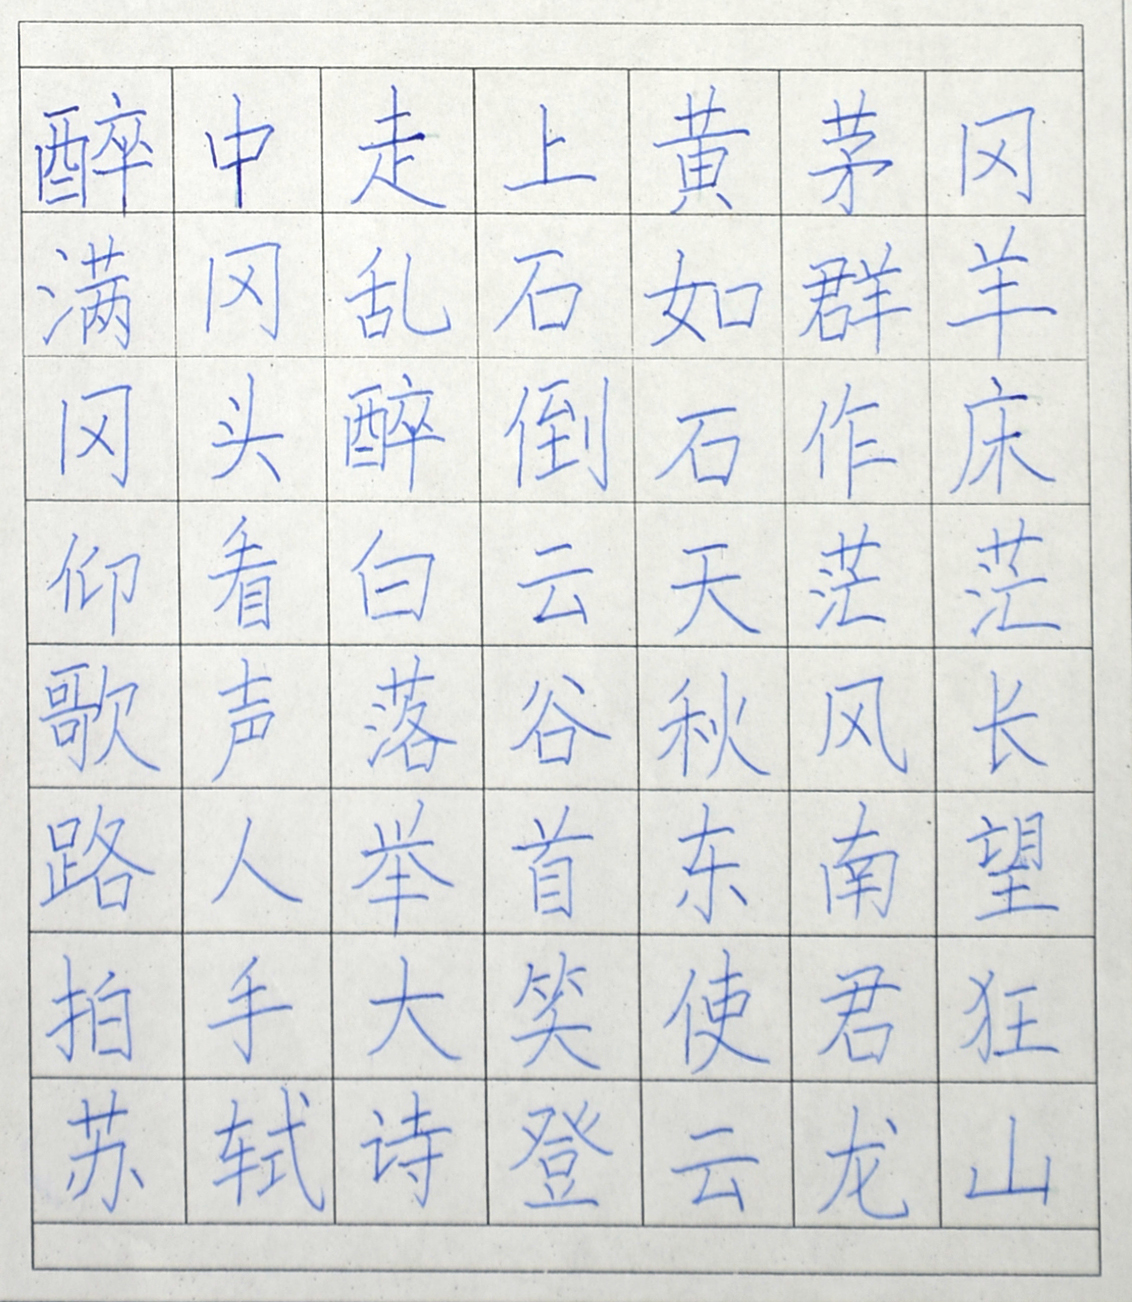 醉中走上黄茅冈
满冈乱石如群羊
冈头醉倒石作床
仰看白云天茫茫
歌声落谷秋风长
路人举首东南望
拍手大笑使君狂
苏轼诗登云龙山